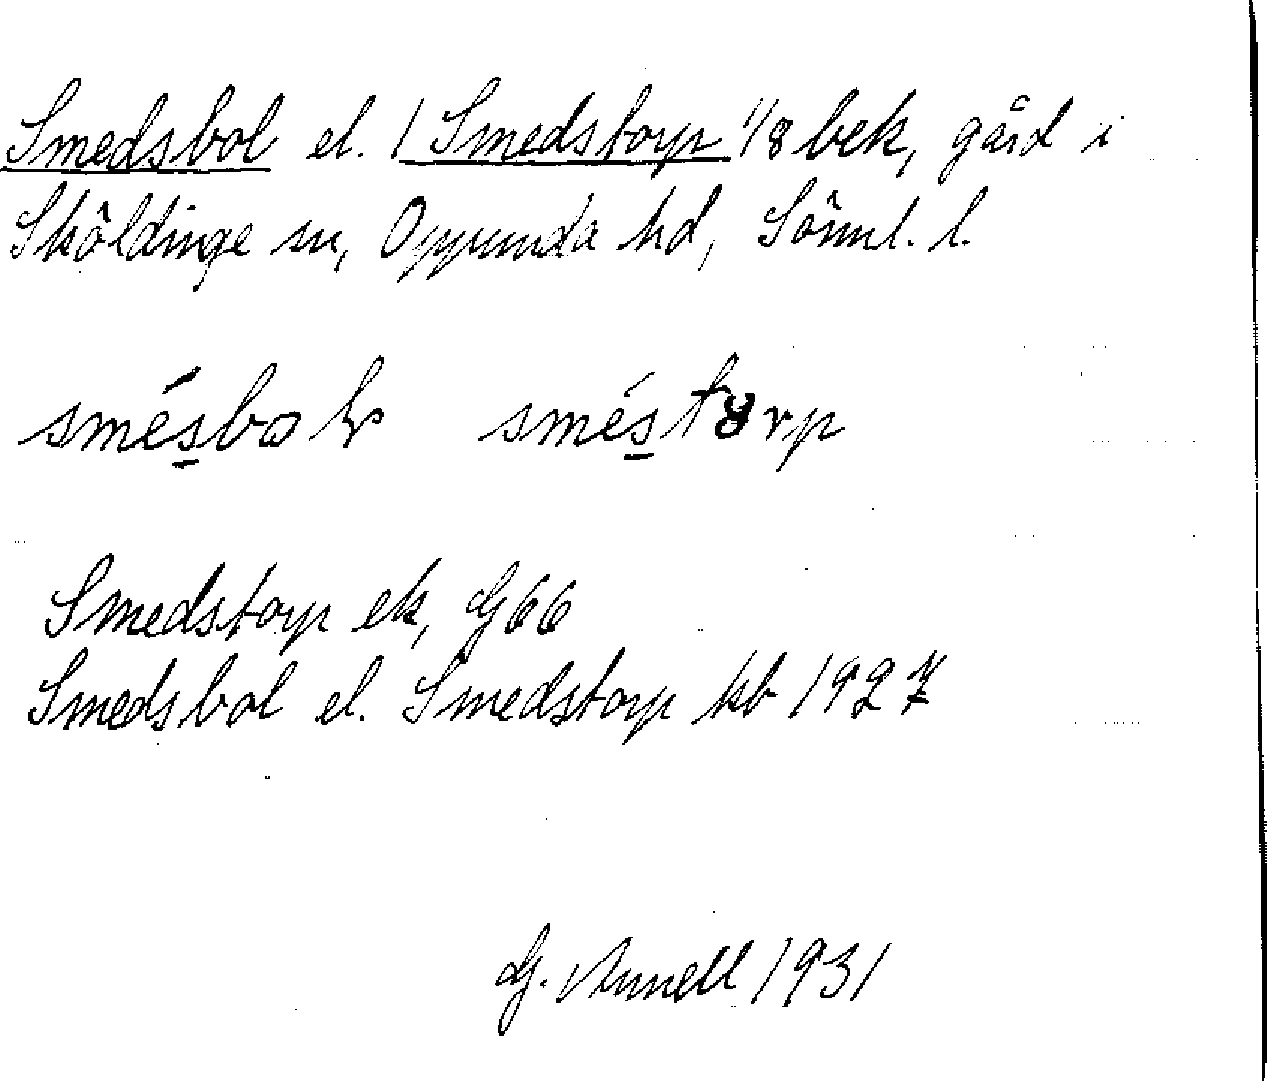 Smedsbol el. / Smedstorp 1/8 bek, gård i
Sköldinge sn, Oppunda hd, Sörml. l.
smésbol sméstorp
Smedstorp ek, G66
Smedsbol el. Smedstorp kb 1927
G. Annell 1931